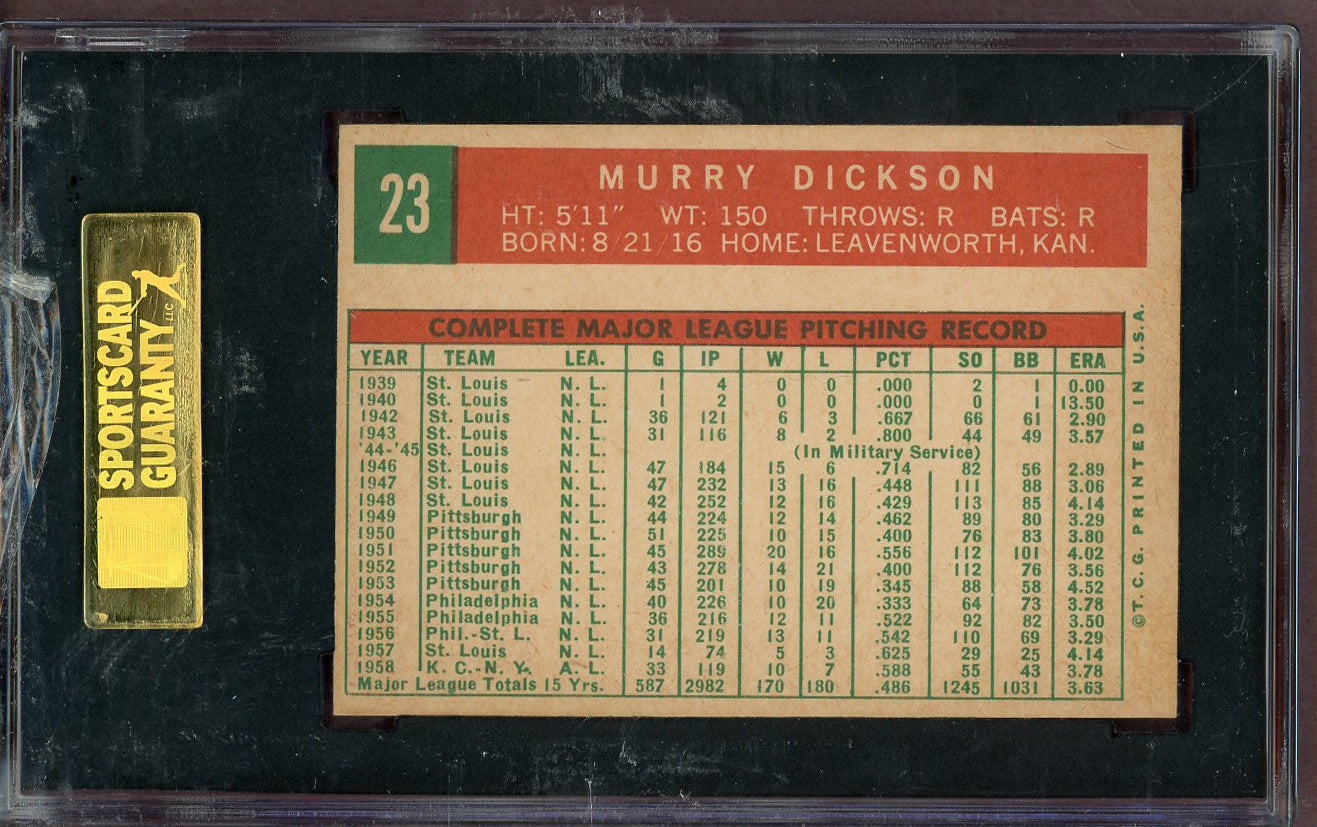 23
MURRY DICKSON
HT: 5'11" WT: 150 THROWS: R BATS: R
BORN: 8/21/16 HOME: LEAVENWORTH, KAN.
COMPLETE MAJOR LEAGUE PITCHING RECORD
YEAR TEAM LEA. G IP W L PCT SO BB ERA
1939 St. Louis N. L. 1 4 0 0 .000 2 1 0.00
1940 St. Louis N. L. 1 2 0 0 .000 0 1 13.50
1942 St. Louis N. L. 36 121 6 3 .667 66 61 2.90
1943 St. Louis N. L. 31 116 8 2 .800 44 49 3.57
'44-'45 St. Louis N. L. (In Military Service)
1946 St. Louis N. L. 47 184 15 6 .714 82 56 2.89
1947 St. Louis N. L. 47 232 13 16 .448 111 88 3.06
1948 St. Louis N. L. 42 252 12 16 .429 113 85 4.14
1949 Pittsburgh N. L. 44 224 12 14 .462 89 80 3.29
1950 Pittsburgh N. L. 51 225 10 15 .400 76 83 3.80
1951 Pittsburgh N. L. 45 289 20 16 .556 112 101 4.02
1952 Pittsburgh N. L. 43 278 14 21 .400 112 76 3.56
1953 Pittsburgh N. L. 45 201 10 19 .345 88 58 4.52
1954 Philadelphia N. L. 40 226 10 20 .333 64 73 3.78
1955 Philadelphia N. L. 36 216 12 11 .522 92 82 3.50
1956 Phil.-St. L. N. L. 31 219 13 11 .542 110 69 3.29
1957 St. Louis N. L. 14 74 5 3 .625 29 25 4.14
1958 K. C.-N. Y. A. L. 33 119 10 7 .588 55 43 3.78
Major League Totals 15 Yrs. 587 2982 170 180 .486 1245 1031 3.63
©T. C. G. PRINTED IN U.S.A.
SPORTSCARD
GUARANTY LLC